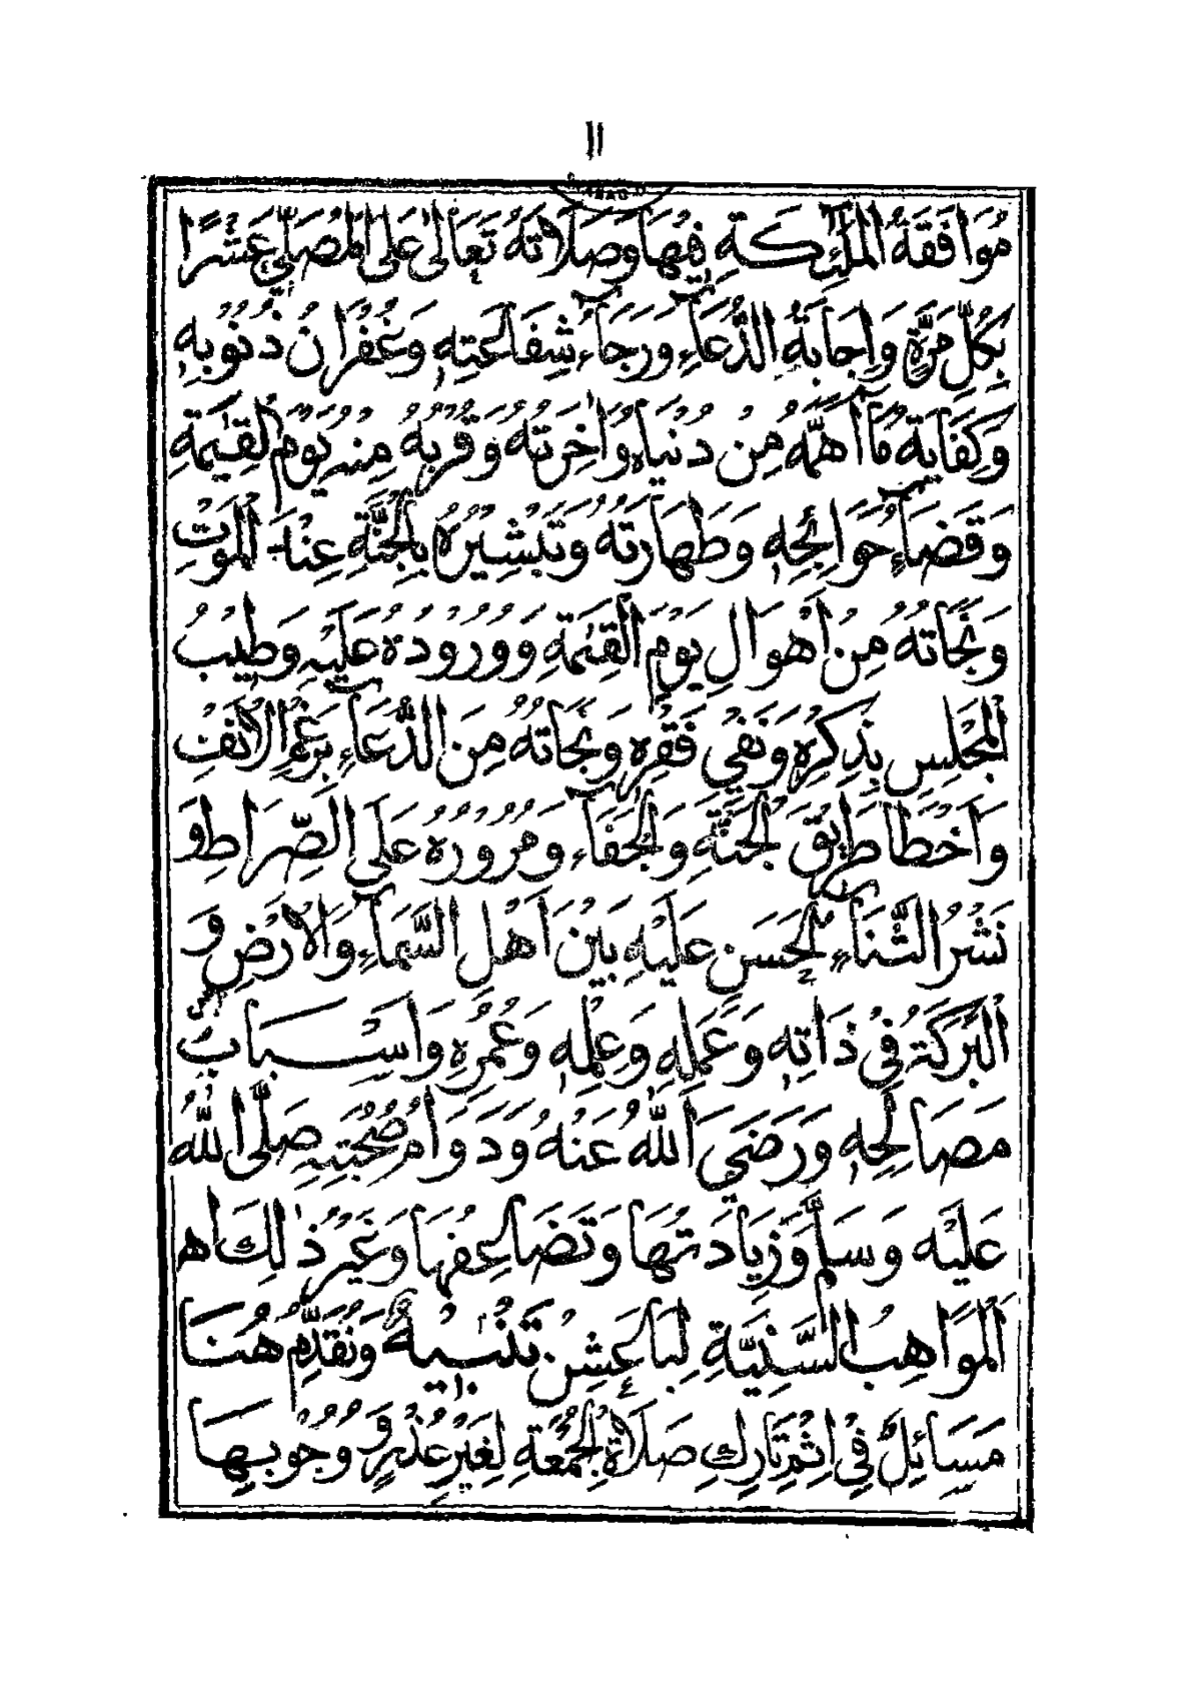 ١١
مُوَافَقَةُ الْمَلٰئِكَةِ فِيْهَا وَصَلَاتُهُ تَعَالٰى عَلَى الْمُصَلِّيْ عَشْرًا
بِكُلِّ مَرَّةٍ وَاِجَابَةُ الدُّعَآءِ وَرَجَآءُ شَفَاعَتِهٖ وَغُفْرَانُ ذُنُوْبِهٖ
وَكِفَايَةُ مَآ اَهَمَّهُ مِنْ دُنْيَاهُ وَاٰخِرَتِهِ وَقُرْبُهُ مِنْهُ يَوْمَ الْقِيٰمَةِ
وَقَضَآءِ حَوَائِجِهٖ وَطَهَارَتُهُ وَتَبْشِيْرُهُ بِالْجَنَّةِ عِنْدَ الْمَوْتِ
وَنَجَاتُهُ مِنْ اَهْوَالِ يَوْمِ الْقِيٰمَةِ وَوُرُوْدُهُ عَلَيْهِ وَطِيْبُ
الْمَجْلِسِ بِذِكْرِهٖ وَنَفْيُ فَقْرِهٖ وَنَجَاتُهُ مِنَ الدُّعَآءِ بِرَغْمِ الْاَنْفِ
وَاَخْطَا طَرِيْقَ الْجَنَّةِ وَالْجَفَآءِ وَمُرُوْرُهُ عَلَى الصِّرَاطِ وَ
نَشْرُ الثَّنَآءِ الْحَسَنِ عَلَيْهِ بَيْنَ اَهْلِ السَّمَآءِ وَالْاَرْضِ وَ
الْبَرَكَةُ فِيْ ذَاتِهٖ وَعَمَلِهٖ وَعِلْمِهٖ وَعُمُرِهٖ وَاَسْبَابِ
مَصَالِحِهٖ وَرَضَيَ اللّٰهُ عَنْهُ وَدَوَامُ مَحَبَّتِهٖ صَلَّى اللّٰهُ
عَلَيْهِ وَسَلَّمَ وَزِيَادَتُهَا وَتَضَاعُفُهَا وَغَيْرُ ذٰلِكَ اه
الْمَوَاهِبُ السَّنِيَّةِ لِبَاعَشِنْ تَنْبِيْهٌ وَنُقَدِّمُ هُنَا
مَسَائِلَ فِيْ اِثْمِ تَارِكِ صَلَاةِ الْجُمُعَةِ لِغَيْرِ عُذْرٍ وَوُجُوْبِهَا